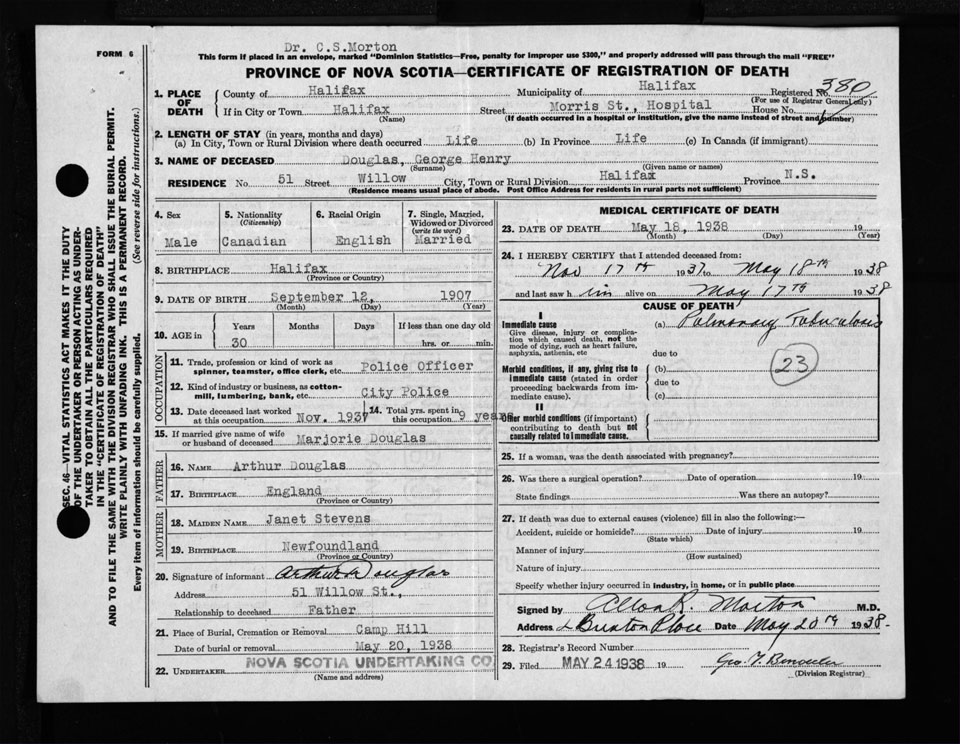 FORM 6
Dr. C.S.Morton
This form if placed in an envelope, marked "Dominion Statistics—Free, penalty for improper use $300," and properly addressed will pass through the mail "FREE"
PROVINCE OF NOVA SCOTIA—CERTIFICATE OF REGISTRATION OF DEATH
1. PLACE OF DEATH
County of Halifax Municipality of Halifax Registered No. 380
(For use of Registrar General only)
If in City or Town Halifax Street Morris St., Hospital House No.
(Name) (If death occurred in a hospital or institution, give the name instead of street and number)
2. LENGTH OF STAY (in years, months and days)
(a) In City, Town or Rural Division where death occurred Life (b) In Province Life (c) In Canada (if immigrant)
3. NAME OF DECEASED Douglas, George Henry
(Surname) (Given name or names)
RESIDENCE No 51 Street Willow City, Town or Rural Division Halifax Province N.S.
(Residence means usual place of abode. Post Office Address for residents in rural parts not sufficient)
SEC. 46—VITAL STATISTICS ACT MAKES IT THE DUTY
OF THE UNDERTAKER OR PERSON ACTING AS UNDER-
TAKER TO OBTAIN ALL THE PARTICULARS REQUIRED
IN THE "CERTIFICATE OF REGISTRATION OF DEATH"
AND TO FILE THE SAME WITH THE DIVISION REGISTRAR WHO SHALL ISSUE THE BURIAL PERMIT.
WRITE PLAINLY WITH UNFADING INK. THIS IS A PERMANENT RECORD.
Every item of information should be carefully supplied. (See reverse side for instructions.)
4. Sex
Male
5. Nationality
(Citizenship)
Canadian
6. Racial Origin
English
7. Single, Married,
Widowed or Divorced
(write the word)
Married
8. BIRTHPLACE Halifax
(Province or Country)
9. DATE OF BIRTH September 12, 1907
(Month) (Day) (Year)
10. AGE in
Years Months Days If less than one day old
30 hrs. or min.
OCCUPATION
11. Trade, profession or kind of work as
spinner, teamster, office clerk, etc. Police Officer
12. Kind of industry or business, as cotton-
mill, lumbering, bank, etc. City Police
13. Date deceased last worked
at this occupation Nov. 1937
14. Total yrs. spent in
this occupation 9 years
15. If married give name of wife
or husband of deceased Marjorie Douglas
FATHER
16. NAME Arthur Douglas
17. BIRTHPLACE England
(Province or Country)
MOTHER
18. MAIDEN NAME Janet Stevens
19. BIRTHPLACE Newfoundland
(Province or Country)
20. Signature of informant Arthur Douglas
Address 51 Willow St.,
Relationship to deceased Father
21. Place of Burial, Cremation or Removal Camp Hill
Date of burial or removal May 20, 1938
22. UNDERTAKER NOVA SCOTIA UNDERTAKING CO
(Name and address)
MEDICAL CERTIFICATE OF DEATH
23. DATE OF DEATH May 18, 1938 19
(Month) (Day) (Year)
24. I HEREBY CERTIFY that I attended deceased from:
Nov 17th 1937 to May 18th 1938
and last saw him alive on May 17th 1938
CAUSE OF DEATH
I
Immediate cause
Give disease, injury or complica-
tion which caused death, not the
mode of dying, such as heart failure,
asphyxia, asthenia, etc
(a) Pulmonary Tuberculosis
due to
Morbid conditions, if any, giving rise to
immediate cause (stated in order
proceeding backwards from im-
mediate cause).
(b)
due to
(c)
23
II
Other morbid conditions (if important)
contributing to death but not
causally related to immediate cause.
25. If a woman, was the death associated with pregnancy?
26. Was there a surgical operation? Date of operation 19
State findings Was there an autopsy?
27. If death was due to external causes (violence) fill in also the following:—
Accident, suicide or homicide? Date of injury 19
(State which)
Manner of injury
(How sustained)
Nature of injury
Specify whether injury occurred in industry, in home, or in public place
Signed by Allan R. Morton M.D.
Address Place Date May 20th 1938.
28. Registrar's Record Number
29. Filed MAY 24 1938 19
(Division Registrar)